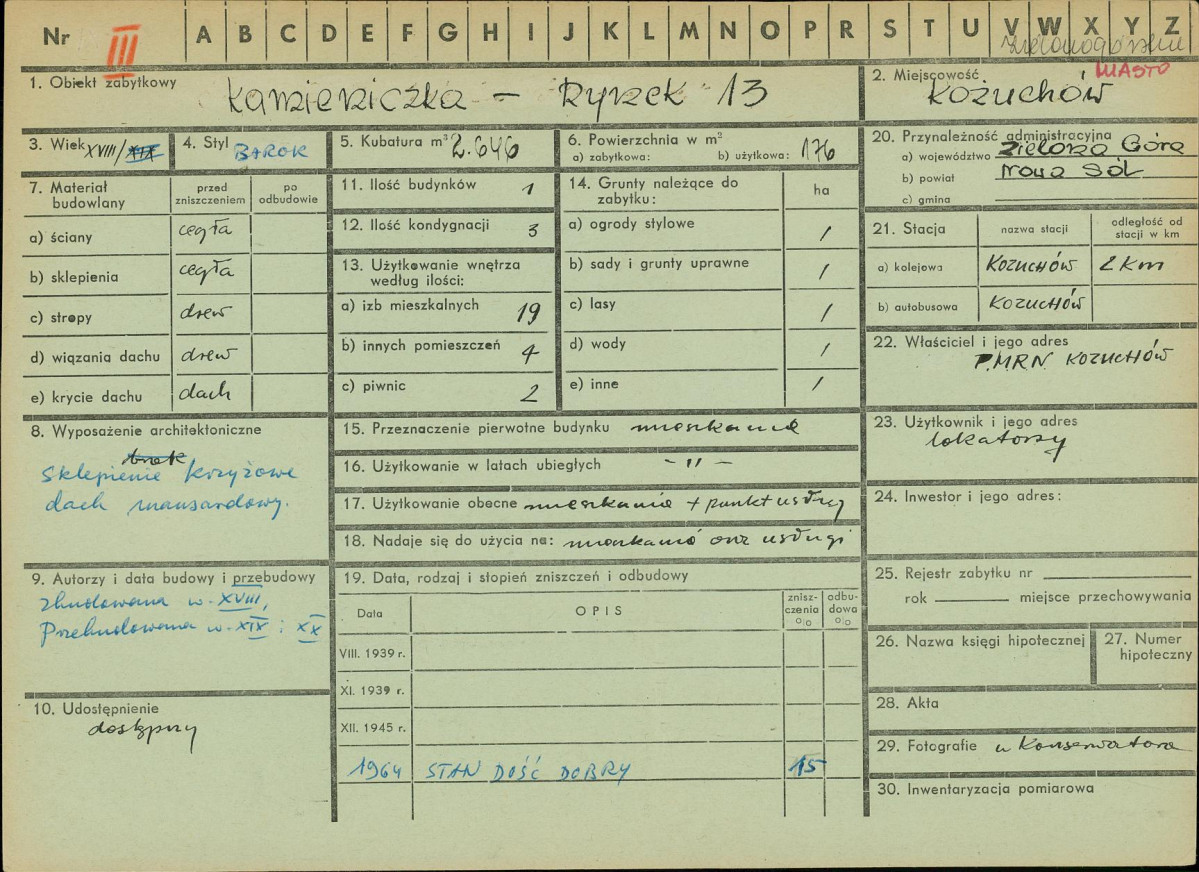 Nr III A B C D E F G H I J K L M N O P R S T U V W X Y Z
zielonogórskie
1. Obiekt zabytkowy Kamieniczka – Rynek 13
2. Miejscowość MIASTO
KOŻUCHÓW
3. Wiek XVIII/XIX
4. Styl BAROK
5. Kubatura m³ 2.646
6. Powierzchnia w m²
a) zabytkowa: b) użytkowa: 176
20. Przynależność administracyjna
a) województwo Zielona Góra
b) powiat Nowa Sól
c) gmina
7. Materiał budowlany
przed zniszczeniem
po odbudowie
a) ściany cegła
b) sklepienia cegła
c) stropy drew
d) wiązania dachu drew
e) krycie dachu dach
11. Ilość budynków 1
12. Ilość kondygnacji 3
13. Użytkowanie wnętrza
według ilości:
a) izb mieszkalnych 19
b) innych pomieszczeń 4
c) piwnic 2
14. Grunty należące do
zabytku:
ha
a) ogrody stylowe /
b) sady i grunty uprawne /
c) lasy /
d) wody /
e) inne /
21. Stacja
nazwa stacji
odległość od
stacji w km
a) kolejowa KOŻUCHÓW 2 km
b) autobusowa KOŻUCHÓW
22. Właściciel i jego adres
P.MRN. KOŻUCHÓW
8. Wyposażenie architektoniczne
brak
Sklepienie krzyżowe
dach mansardowy.
15. Przeznaczenie pierwotne budynku mieszkanie
16. Użytkowanie w latach ubiegłych - " -
17. Użytkowanie obecne mieszkanie + punkt usług
18. Nadaje się do użycia na: mieszkanie oraz usługi
23. Użytkownik i jego adres
lokatorzy
24. Inwestor i jego adres:
9. Autorzy i data budowy i przebudowy
zbudowana w. XVIII,
Przebudowana w. XIX i XX
19. Data, rodzaj i stopień zniszczeń i odbudowy
Data
OPIS
znisz-
czenia
%
odbu-
dowa
%
VIII. 1939 r.
XI. 1939 r.
XII. 1945 r.
1964 STAN DOŚĆ DOBRY 15
25. Rejestr zabytku nr
rok miejsce przechowywania
26. Nazwa księgi hipotecznej
27. Numer
hipoteczny
10. Udostępnienie
dostępny
28. Akta
29. Fotografie u Konserwatora
30. Inwentaryzacja pomiarowa